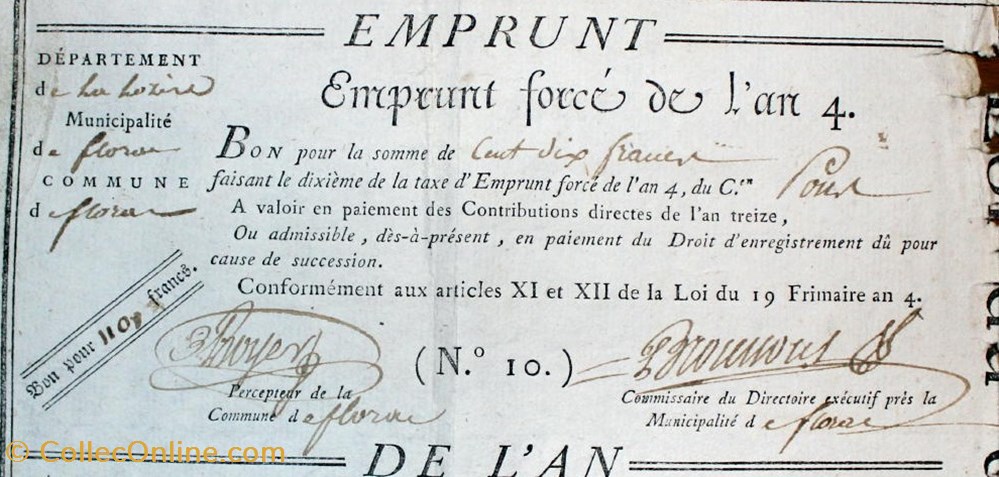 EMPRUNT
DÉPARTEMENT
de La Lozère
Municipalité
de florac
COMMUNE
de florac
Emprunt forcé de l'an 4.
BON pour la somme de Cent dix francs
faisant le dixième de la taxe d'Emprunt forcé de l'an 4, du C.en
A valoir en paiement des Contributions directes de l'an treize,
Ou admissible, dès-à-présent, en paiement du Droit d'enregistrement dû pour
cause de succession.
Conformément aux articles XI et XII de la Loi du 19 Frimaire an 4.
Bon pour 110 francs.
(N.º 10.)
Percepteur de la
Commune de florac
Commissaire du Directoire exécutif près la
Municipalité de florac
DE L'AN
© CollecOnline.com